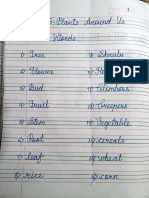 Plants Around Us
Words
1) Tree
2) Flower
3) Bud
4) Fruit
5) Stem
6) Root
7) leaf
8) rice
9) Shrubs
11) Climbers
12) Creepers
13) Vegetable
14) cereals
15) wheat
16) corn